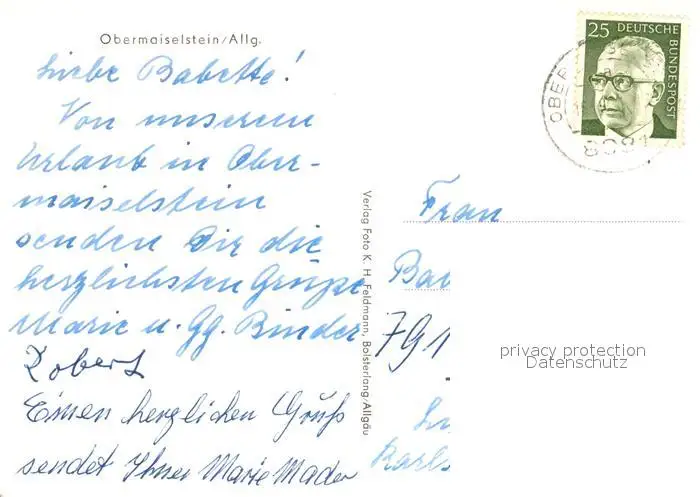 Obermaiselstein/Allg.
Liebe Babette!
Von unserem
Urlaub in Ober-
maiselstein
senden Dir die
herzlichsten Grüße
Marie u. Gg. Binder
Robert
Einen herzlichen Gruß
sendet Ihnen Marie Mader
Verlag Foto K. H. Feldmann, Bolsterlang/Allgäu
25 DEUTSCHE
BUNDESPOST
OBER
8981
Frau
Ba
privacy protection
Datenschutz
Karls